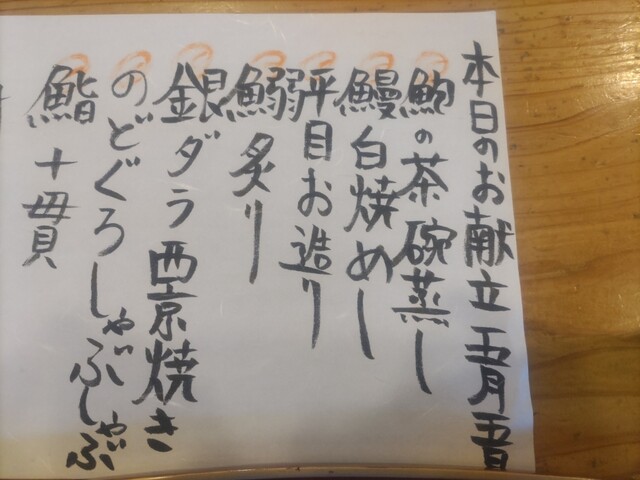 本日のお献立 五月五日
鮑の茶碗蒸し
鰻白焼めし
平目お造り
鰯炙り
銀ダラ西京焼き
のどぐろしゃぶしゃぶ
鮨十貫